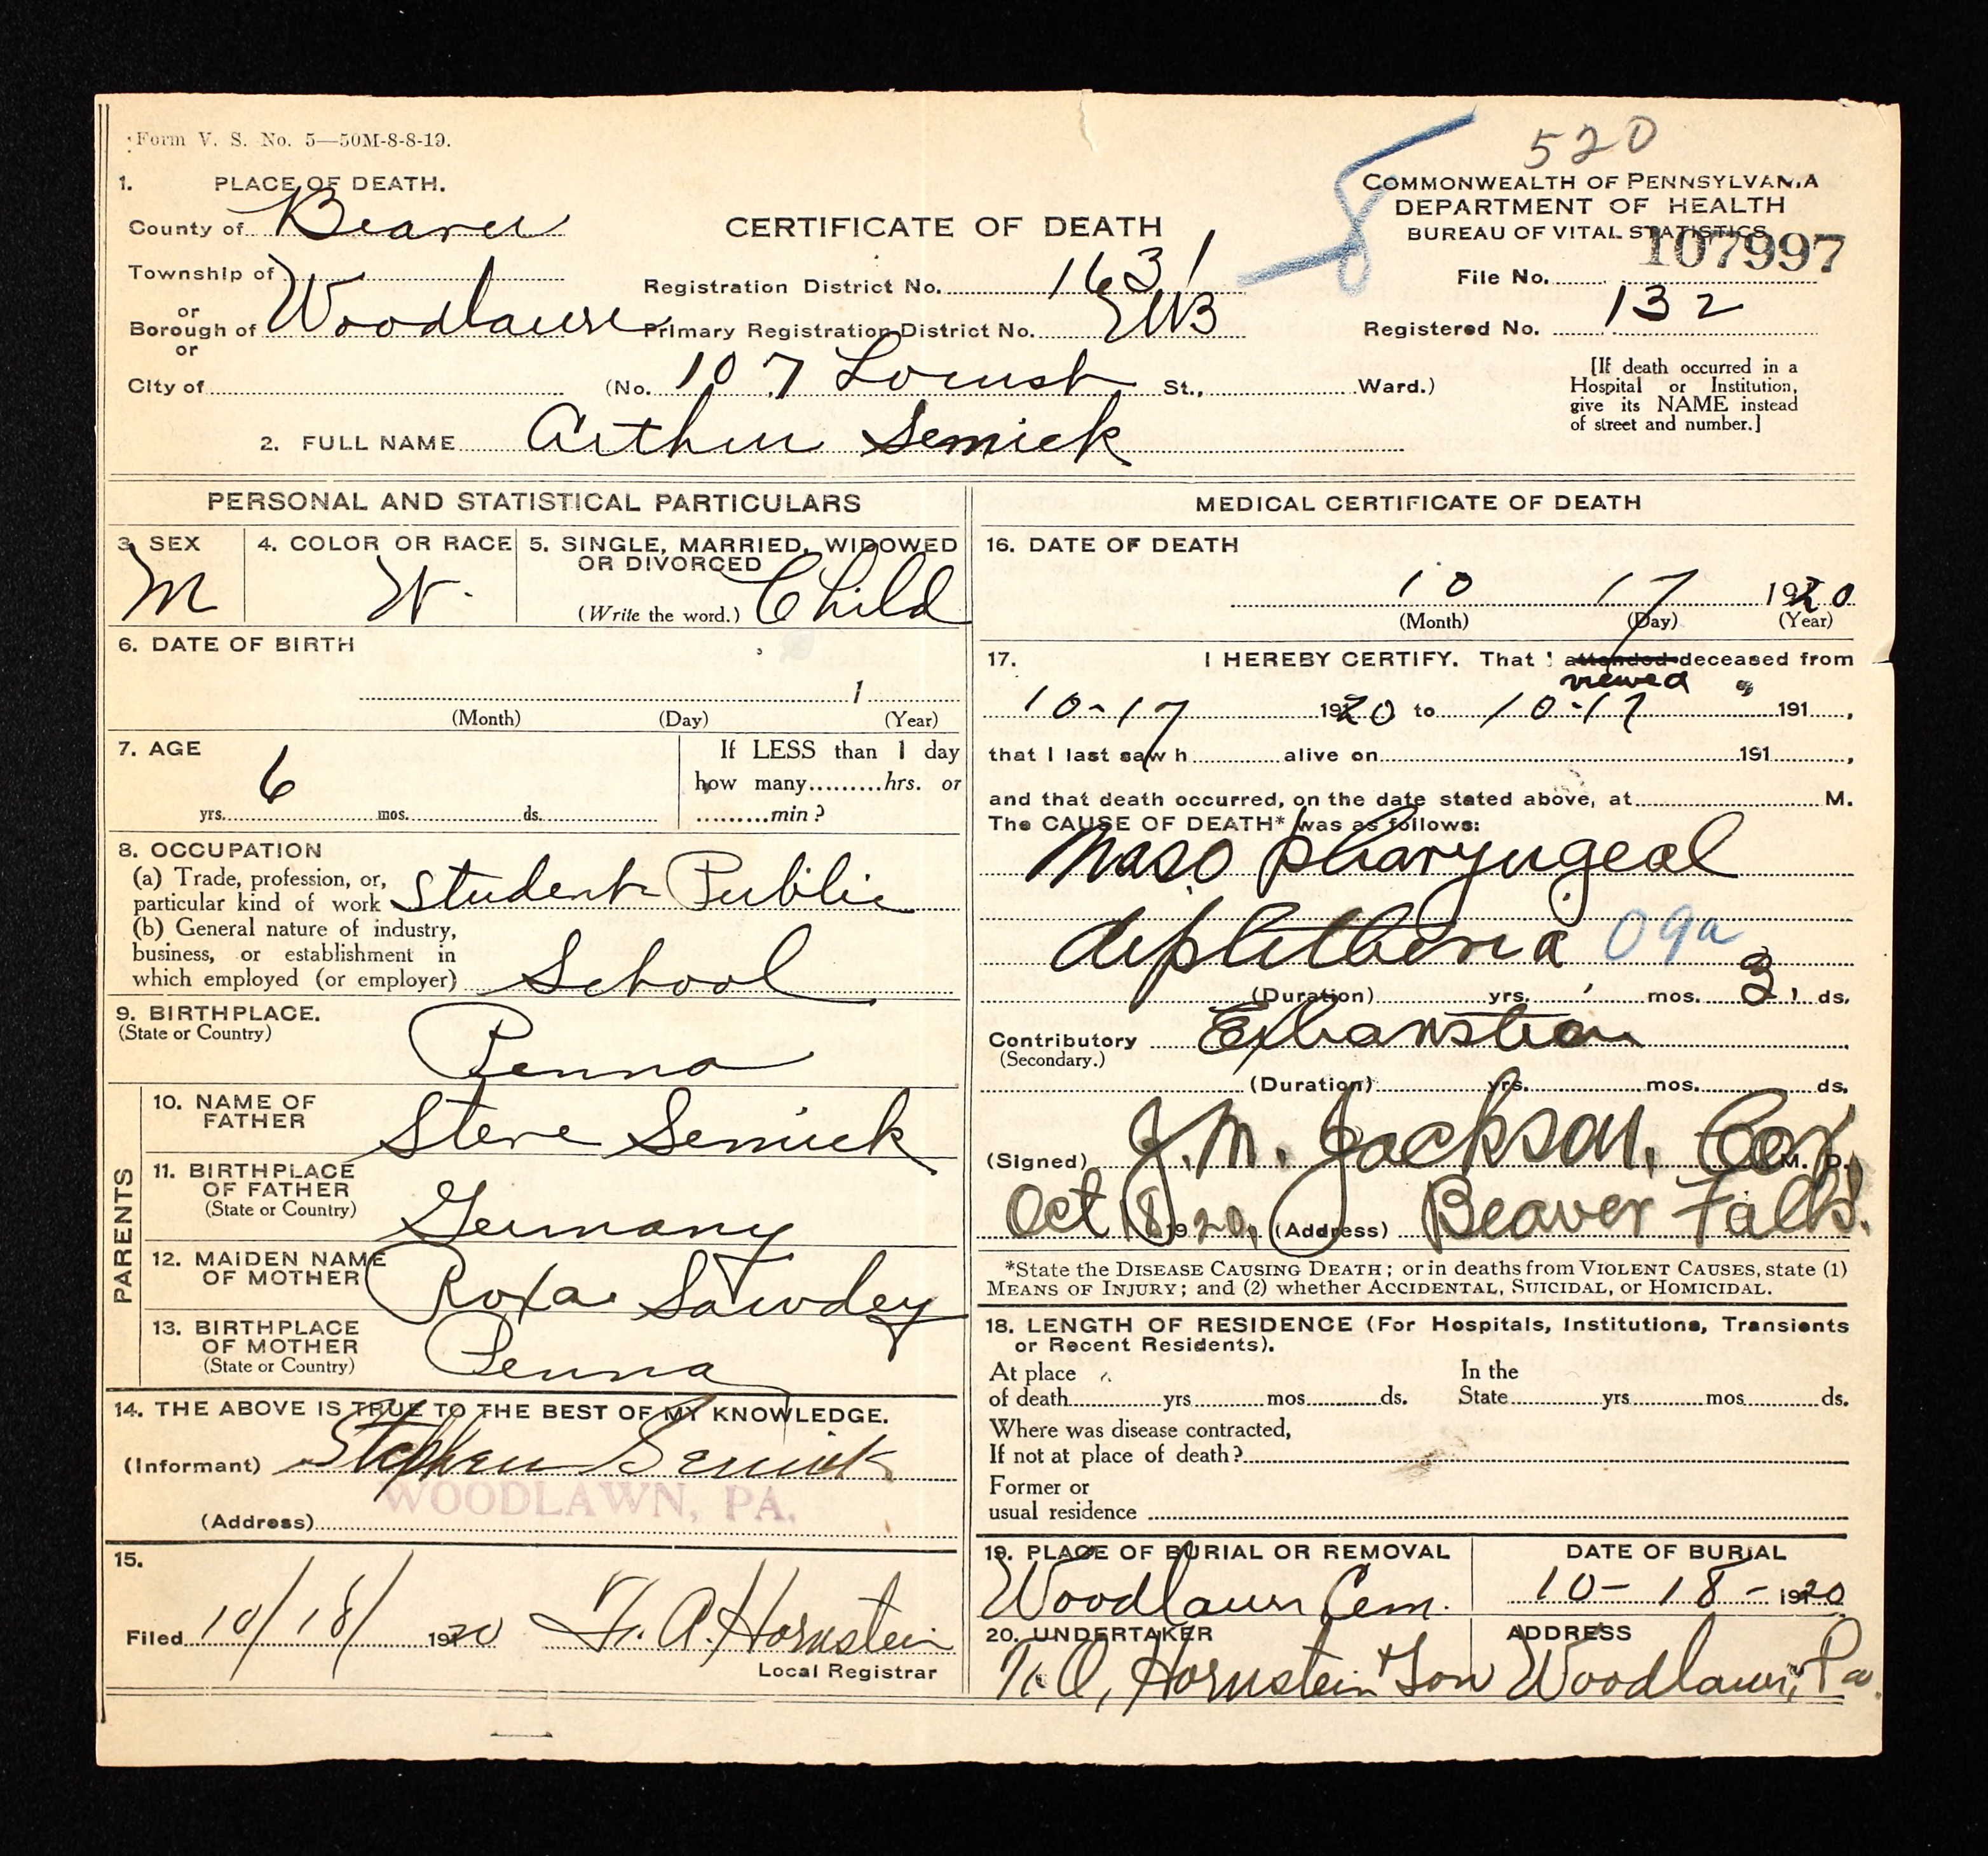 Form V. S. No. 5—50M-8-8-19.
520
1. PLACE OF DEATH.
County of Beaver
Township of
or
Borough of Woodlawn
or
City of
CERTIFICATE OF DEATH
Registration District No. 1631
Primary Registration District No.
(No. 107 Locust St., Ward.)
COMMONWEALTH OF PENNSYLVANIA
DEPARTMENT OF HEALTH
BUREAU OF VITAL STATISTICS
107997
File No.
Registered No. 132
[If death occurred in a
Hospital or Institution,
give its NAME instead
of street and number.]
2. FULL NAME Arthur Semick
PERSONAL AND STATISTICAL PARTICULARS
3. SEX
M
4. COLOR OR RACE
W.
5. SINGLE, MARRIED, WIDOWED
OR DIVORCED
(Write the word.) Child
6. DATE OF BIRTH
1
(Month) (Day) (Year)
7. AGE
6
yrs. mos. ds.
If LESS than 1 day
how many hrs. or
min?
8. OCCUPATION
(a) Trade, profession, or,
particular kind of work Student Public
(b) General nature of industry,
business, or establishment in
which employed (or employer) School
9. BIRTHPLACE.
(State or Country)
Penna
PARENTS
10. NAME OF
FATHER
Steve Semick
11. BIRTHPLACE
OF FATHER
(State or Country)
Germany
12. MAIDEN NAME
OF MOTHER
Roxa Sawdey
13. BIRTHPLACE
OF MOTHER
(State or Country)
Penna
14. THE ABOVE IS TRUE TO THE BEST OF MY KNOWLEDGE.
(Informant) Stephen Semick
WOODLAWN, PA.
(Address)
15.
Filed 10/18/ 1920 F. A. Hornstein
Local Registrar
MEDICAL CERTIFICATE OF DEATH
16. DATE OF DEATH
10 17 1920
(Month) (Day) (Year)
17. I HEREBY CERTIFY. That I attended deceased from
viewed
10-17 1920 to 10-17 191 ,
that I last saw h alive on 191 ,
and that death occurred, on the date stated above, at M.
The CAUSE OF DEATH* was as follows:
Naso pharyngeal
diphtheria 09a
(Duration) yrs. mos. 3 ds.
Contributory Exhaustion
(Secondary.)
(Duration) yrs. mos. ds.
(Signed) J. M. Jackson, Cor, M. D.
Oct 18 1920, (Address) Beaver Falls.
*State the DISEASE CAUSING DEATH; or in deaths from VIOLENT CAUSES, state (1)
MEANS OF INJURY; and (2) whether ACCIDENTAL, SUICIDAL, or HOMICIDAL.
18. LENGTH OF RESIDENCE (For Hospitals, Institutions, Transients
or Recent Residents).
At place
of death yrs mos ds.
In the
State yrs mos ds.
Where was disease contracted,
If not at place of death?
Former or
usual residence
19. PLACE OF BURIAL OR REMOVAL
Woodlawn Cem.
DATE OF BURIAL
10-18-1920
20. UNDERTAKER
Hornstein + Son
ADDRESS
Woodlawn, Pa.